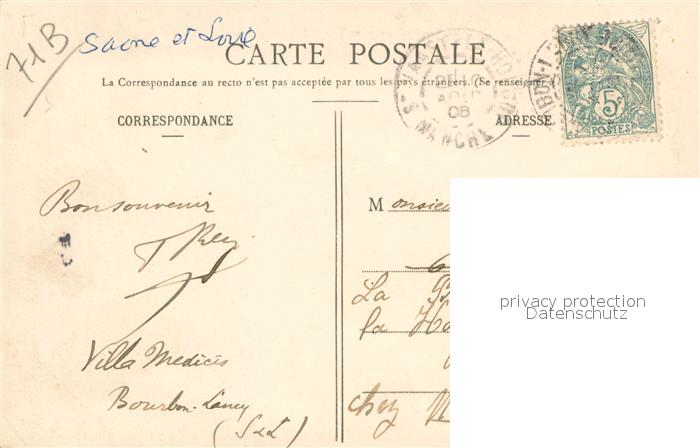 71B
Saone et Loire
CARTE POSTALE
La Correspondance au recto n'est pas acceptée par tous les pays étrangers. (Se renseigner à
CORRESPONDANCE
ADRESSE
5c
POSTES
MANCHE
08
Bon souvenir
Villa Medicis
Bourbon-Lancy
(S&L)
Monsie
La
la Ha
chez M
privacy protection
Datenschutz